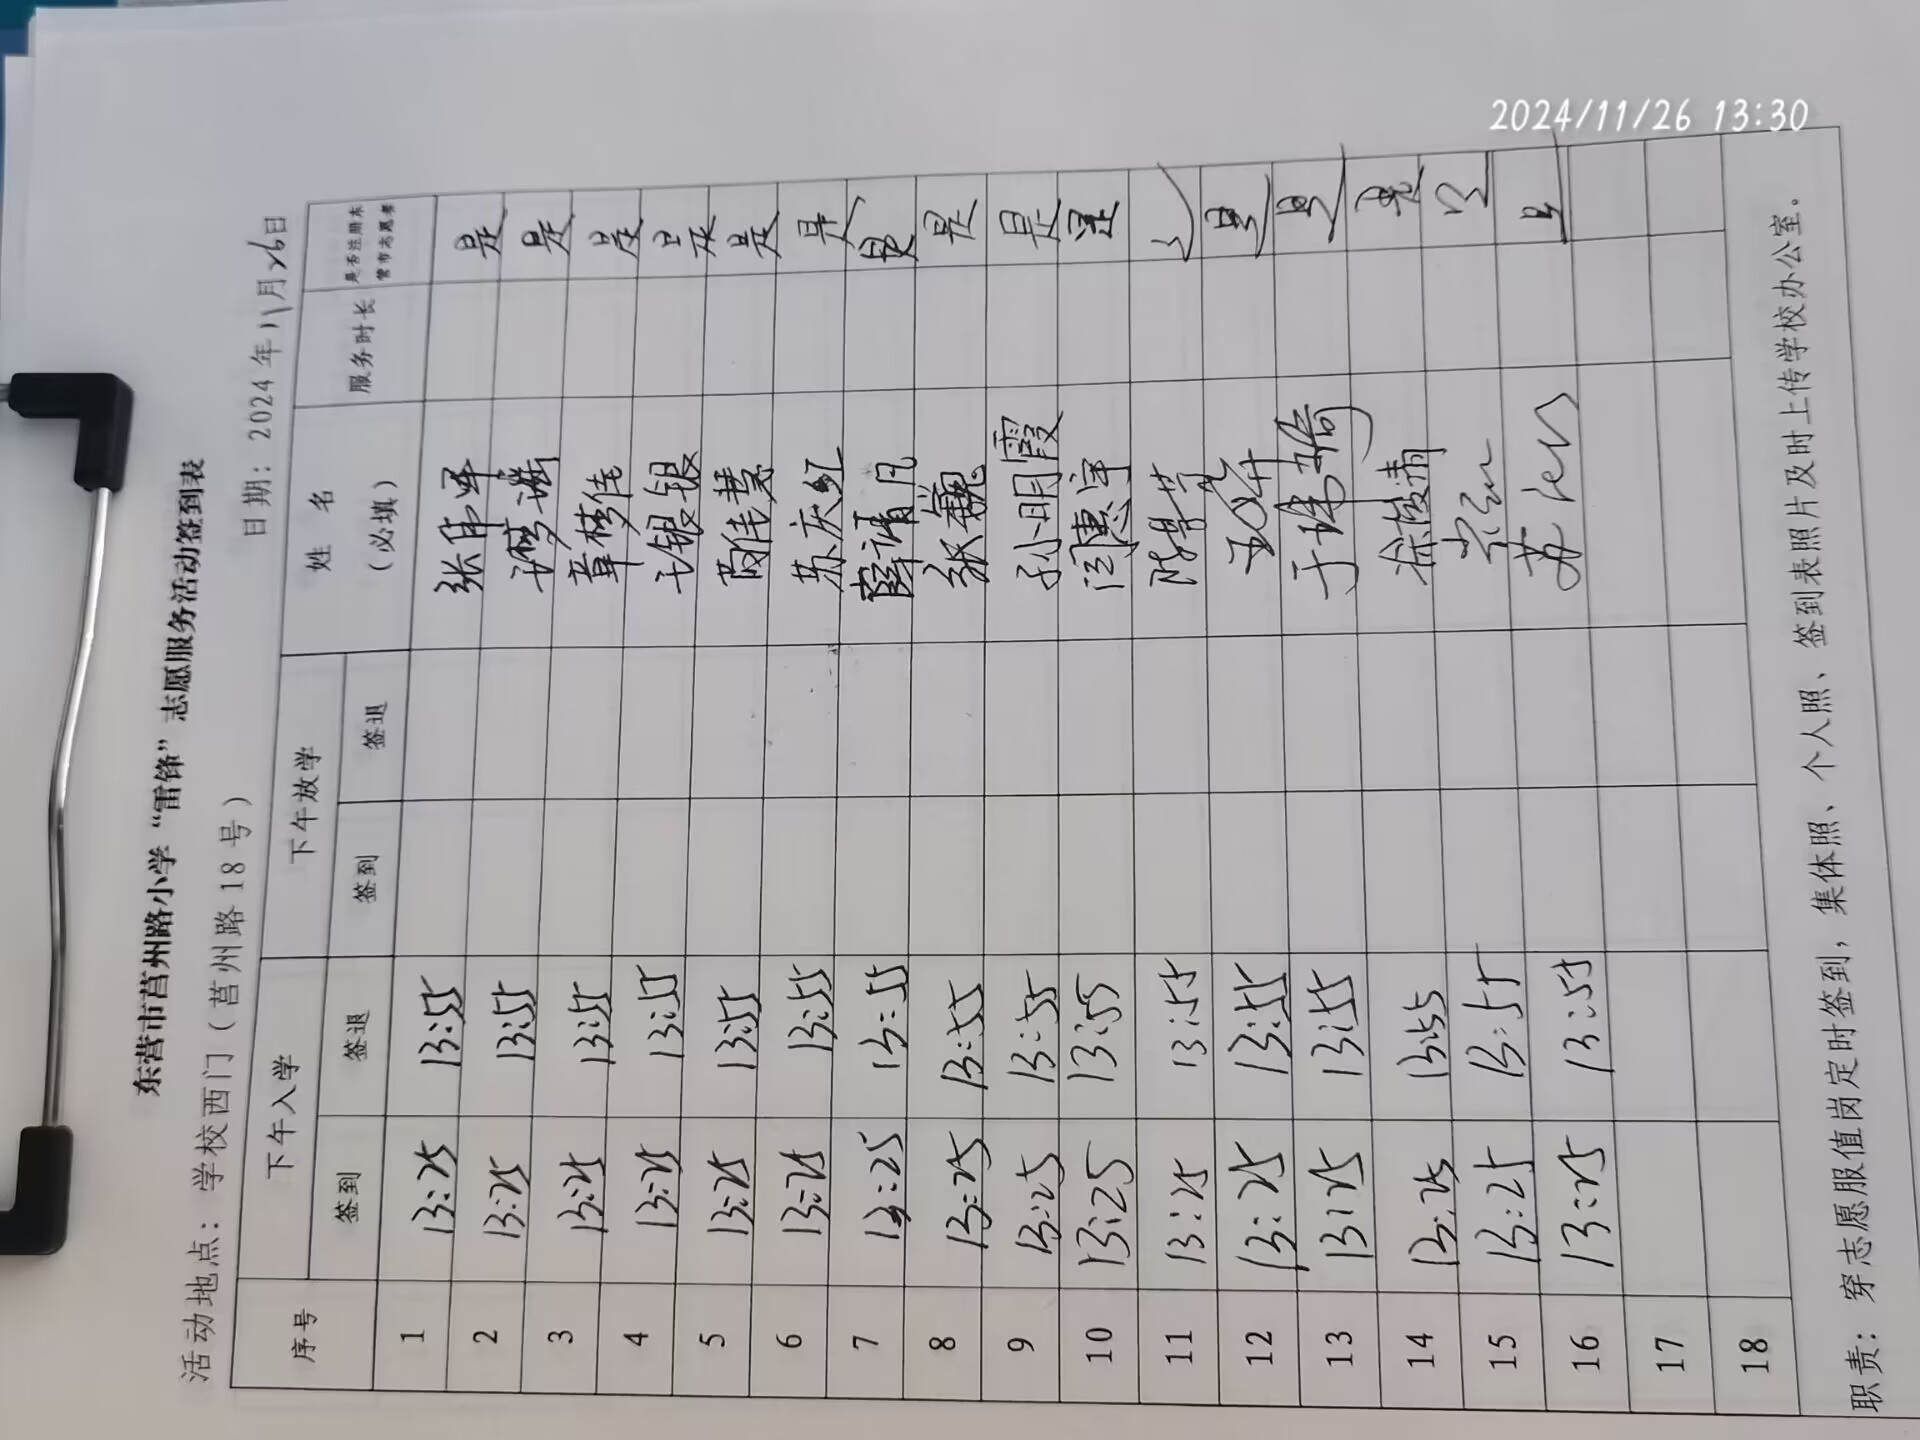 2024/11/26 13:30
东营市莒州路小学“雷锋”志愿服务活动签到表
活动地点：学校西门（莒州路18号） 日期：2024年11月26日
序号 下午入学 下午放学 姓 名 服务时长 是否注册东
签到 签退 签到 签退 （必填） 营市志愿者
1 13:25 13:55 张 是
2 13:25 13:55 是
3 13:25 13:55 章 佳 是
4 13:25 13:55 银银 是
5 13:25 13:55 佳慧 是
6 13:25 13:55 苏庆虹 是
7 13:25 13:55 薛清凡 是
8 13:25 13:55 张巍 是
9 13:25 13:55 孙明霞 是
10 13:25 13:55 闫惠宇 是
11 13:25 13:55
12 13:25 13:55 是
13 13:25 13:55 于 是
14 13:25 13:55 徐 青 是
15 13:25 13:55
16 13:25 13:55 苏
17
18
职责：穿志愿服值岗定时签到，集体照、个人照、签到表照片及时上传学校办公室。